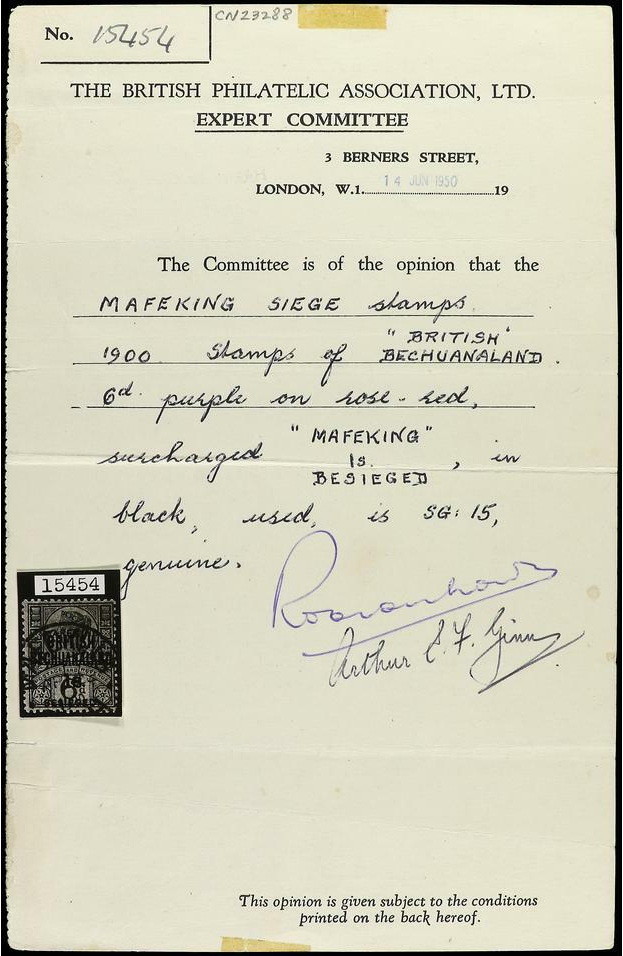 CN23288
No. 15454
THE BRITISH PHILATELIC ASSOCIATION, LTD.
EXPERT COMMITTEE
3 BERNERS STREET,
LONDON, W.1. 14 JUN 1950 19
The Committee is of the opinion that the
MAFEKING SIEGE stamps.
1900. Stamps of "BRITISH'
BECHUANALAND.
6d. purple on rose-red,
surcharged "MAFEKING"
Is
BESIEGED, in
black, used, is SG: 15,
genuine.
15454
BRITISH
BECHUANALAND
Arthur E. F. Ginn
This opinion is given subject to the conditions
printed on the back hereof.